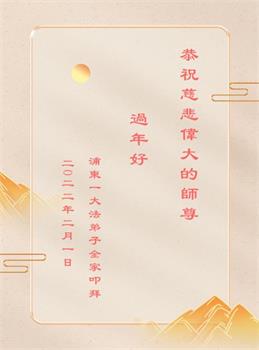 恭祝慈悲偉大的師尊
過年好
浦東一大法弟子全家叩拜
二〇二二年二月一日